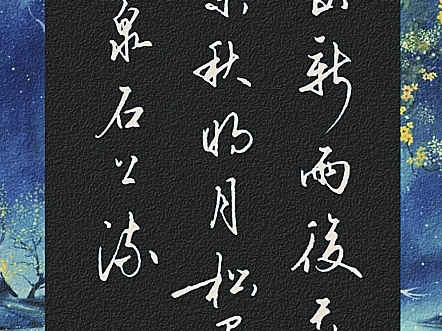 山新雨後天
來秋明月松
泉石上流